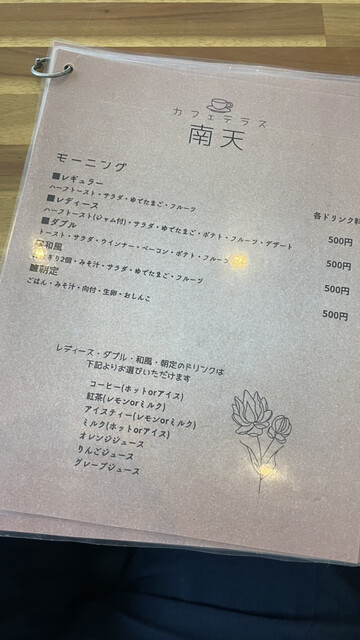 カフェテラス
南天
モーニング
■レギュラー 各ドリンク料
ハーフトースト・サラダ・ゆでたまご・フルーツ
■レディース 500円
ハーフトースト(ジャム付)・サラダ・ゆでたまご・ポテト・フルーツ・デザート
■ダブル 500円
トースト・サラダ・ウインナー・ベーコン・ポテト・フルーツ
■和風 500円
2個・みそ汁・サラダ・ゆでたまご・フルーツ
■朝定 500円
ごはん・みそ汁・向付・生卵・おしんこ
レディース・ダブル・和風・朝定のドリンクは
下記よりお選びいただけます
コーヒー(ホットorアイス)
紅茶(レモンorミルク)
アイスティー(レモンorミルク)
ミルク(ホットorアイス)
オレンジジュース
りんごジュース
グレープジュース